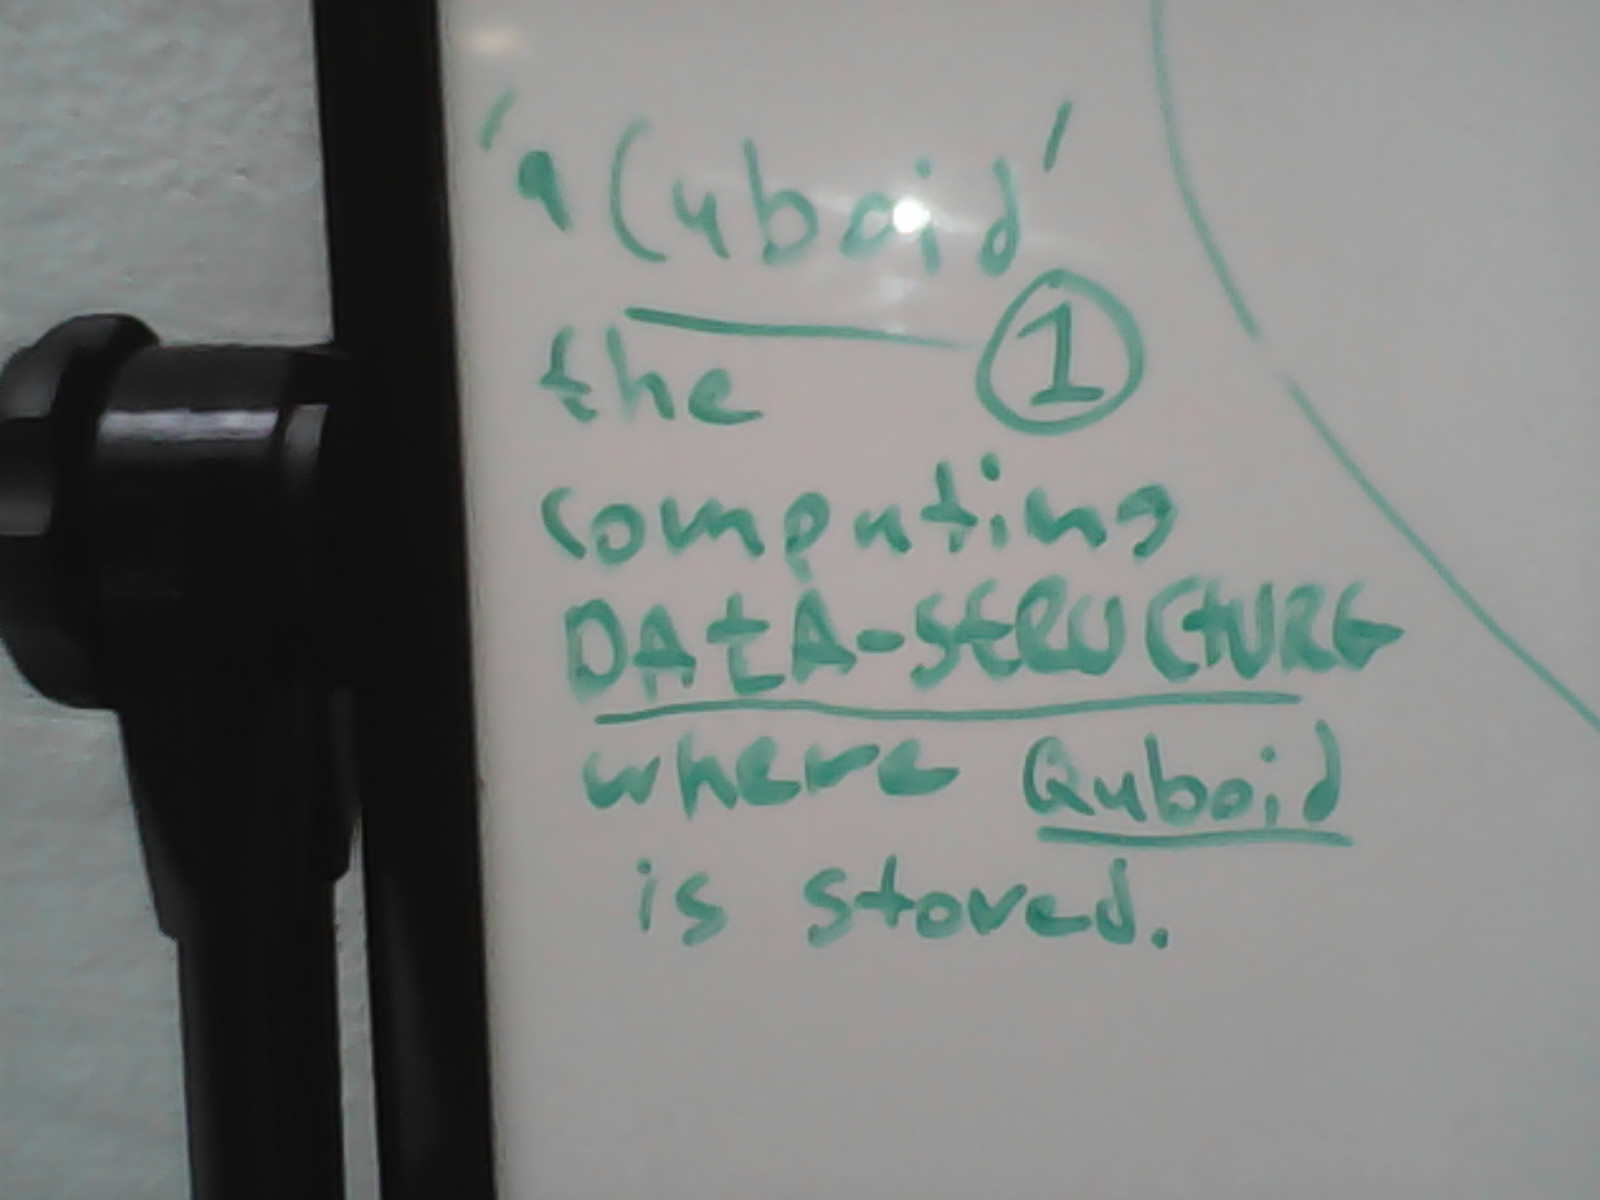 'a Cuboid'
the ①
computing
DAtA-StRUCtURE
where Quboid
is stored.